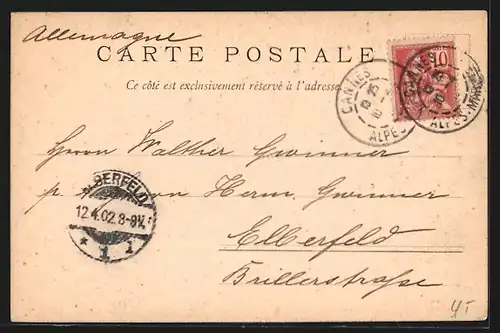 Allemagne
CARTE POSTALE
Ce côté est exclusivement réservé à l'adresse
10
CANNES
ALPES
CANNES
ALPES-MAR
Herrn Walther Gwinner
p. Herrn Herm. Gwinner
ELBERFELD
12.4.02.8-9V.
* 1 1
Elberfeld
Brillerstraße